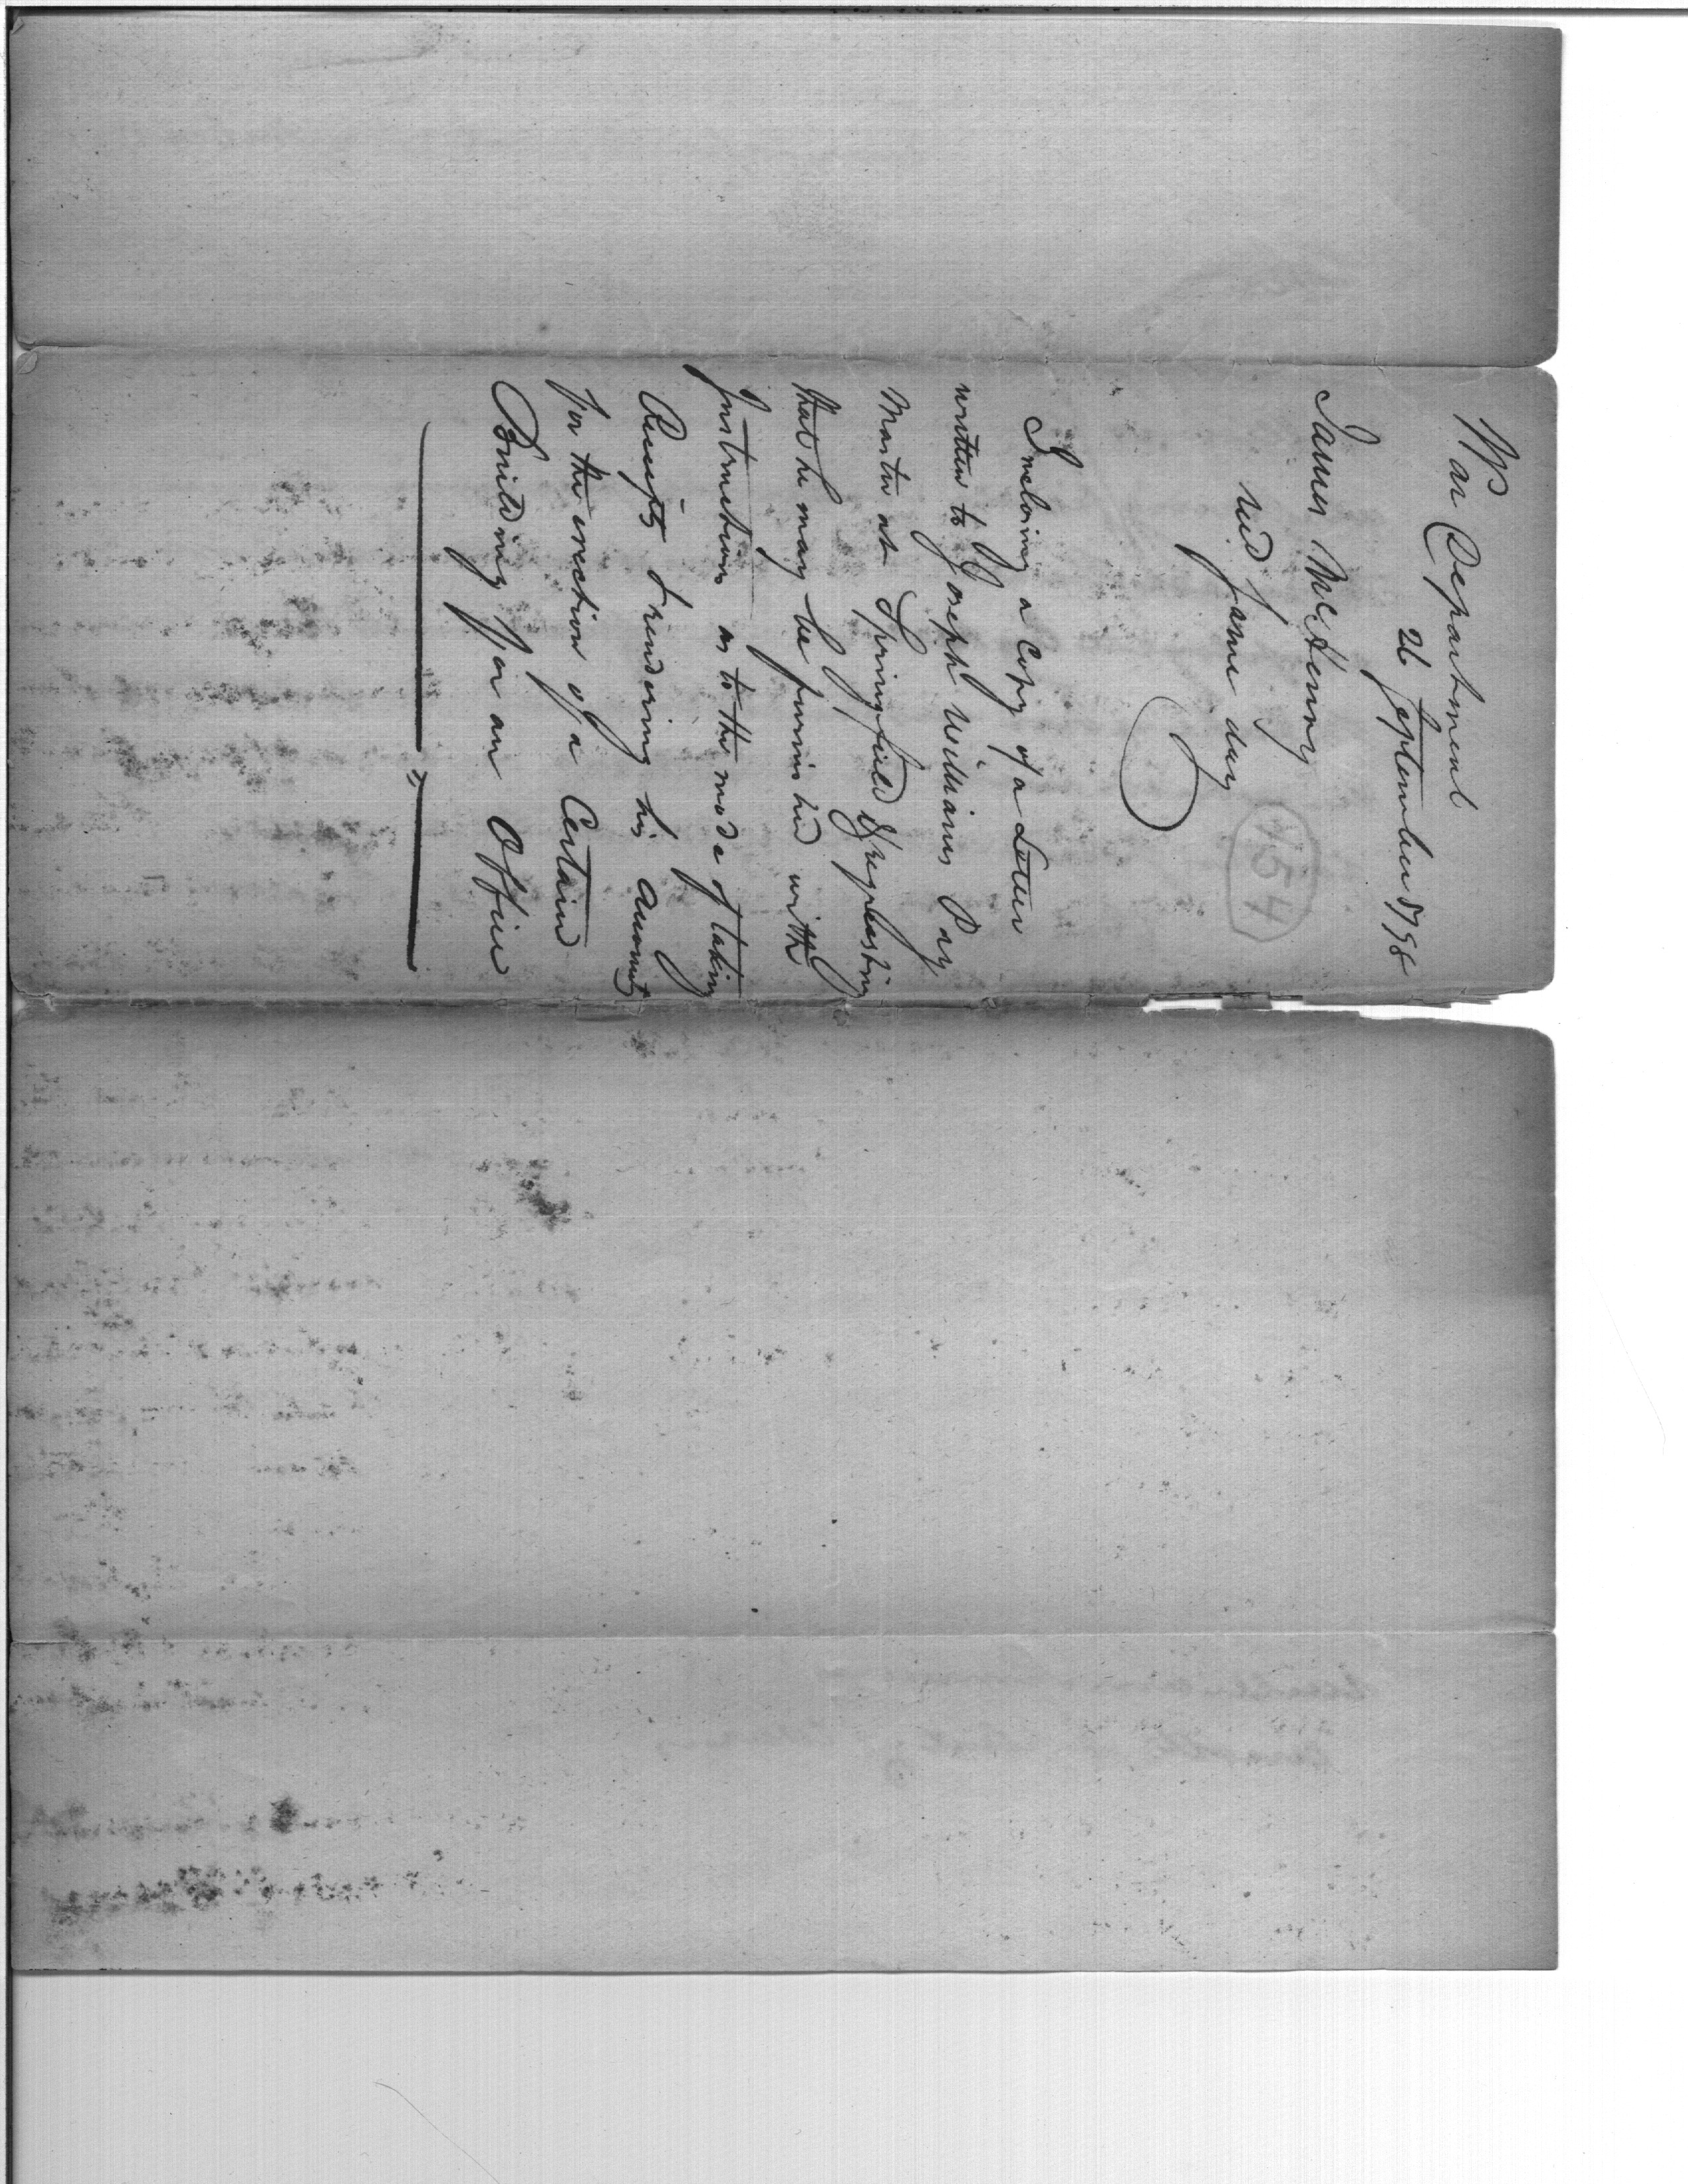 War Department
26 September 1798
James McHenry
recd same day
454
Inclosing a Copy of a Letter
written to Joseph Williams Pay
Master at Springfield & requesting
that he may be furnished with
Instructions as to the mode of taking
Receipts & rendering his Accounts
for the erection of a Certain
Building for an Office